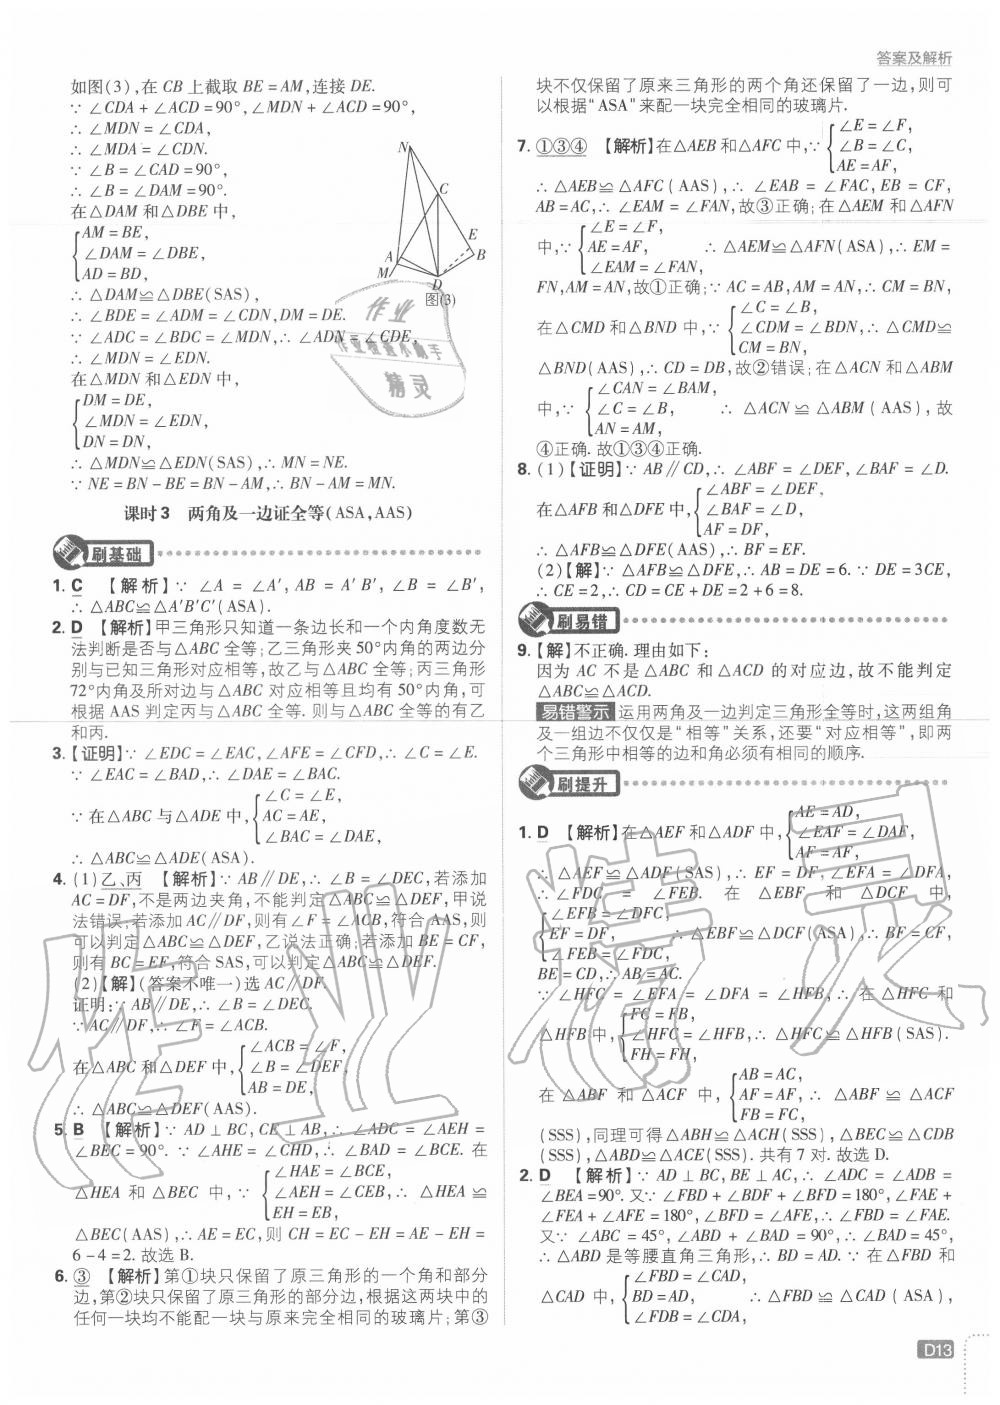 答案及解析
如图(3),在 CB 上截取 BE=AM,连接 DE.
∵ ∠CDA+∠ACD=90°,∠MDN+∠ACD=90°,
∴ ∠MDN=∠CDA,
∴ ∠MDA=∠CDN.
∵ ∠B=∠CAD=90°,
∴ ∠B=∠DAM=90°.
在△DAM 和△DBE 中,
AM=BE,
∠DAM=∠DBE,
AD=BD,
∴ △DAM≌△DBE(SAS),
∴ ∠BDE=∠ADM=∠CDN,DM=DE.
∵ ∠ADC=∠BDC=∠MDN,∴ ∠ADN=∠CDE,
∴ ∠MDN=∠EDN.
在△MDN 和△EDN 中,
DM=DE,
∠MDN=∠EDN,
DN=DN,
∴ △MDN≌△EDN(SAS),∴ MN=NE.
∵ NE=BN-BE=BN-AM,∴ BN-AM=MN.
N
C
E
B
A
M
D
图(3)
课时3 两角及一边证全等(ASA,AAS)
刷基础
1. C 【解析】∵ ∠A=∠A′,AB=A′B′,∠B=∠B′,
∴ △ABC≌△A′B′C′(ASA).
2. D 【解析】甲三角形只知道一条边长和一个内角度数无
法判断是否与△ABC 全等;乙三角形夹 50°内角的两边分
别与已知三角形对应相等,故乙与△ABC 全等;丙三角形
72°内角及所对边与△ABC 对应相等且均有 50°内角,可
根据 AAS 判定丙与△ABC 全等. 则与△ABC 全等的有乙
和丙.
3.【证明】∵ ∠EDC=∠EAC,∠AFE=∠CFD,∴ ∠C=∠E.
∵ ∠EAC=∠BAD,∴ ∠DAE=∠BAC.
∵ 在△ABC 与△ADE 中,
∠C=∠E,
AC=AE,
∠BAC=∠DAE,
∴ △ABC≌△ADE(ASA).
4. (1)乙、丙 【解析】∵ AB∥DE,∴ ∠B=∠DEC,若添加
AC=DF,不是两边夹角,不能判定△ABC≌△DEF,甲说
法错误;若添加 AC∥DF,则有∠F=∠ACB,符合 AAS,则
可以判定△ABC≌△DEF,乙说法正确;若添加 BE=CF,
则有 BC=EF,符合 SAS,可以判定△ABC≌△DEF.
(2)【解】(答案不唯一)选 AC∥DF.
证明:∵ AB∥DE,∴ ∠B=∠DEC.
∵ AC∥DF,∴ ∠F=∠ACB.
在△ABC 和△DEF 中,
∠ACB=∠F,
∠B=∠DEF,
AB=DE,
∴ △ABC≌△DEF(AAS).
5. B 【解析】∵ AD⊥BC,CE⊥AB,∴ ∠ADC=∠AEH=
∠BEC=90°. ∵ ∠AHE=∠CHD,∴ ∠BAD=∠BCE. 在
△HEA 和△BEC 中,∵
∠HAE=∠BCE,
∠AEH=∠CEB,∴ △HEA≌
EH=EB,
△BEC(AAS),∴ AE=EC,则 CH=EC-EH=AE-EH=
6-4=2. 故选 B.
6. ③ 【解析】第①块只保留了原三角形的一个角和部分
边,第②块只保留了原三角形的部分边,根据这两块中的
任何一块均不能配一块与原来完全相同的玻璃片;第③
块不仅保留了原来三角形的两个角还保留了一边,则可
以根据“ASA”来配一块完全相同的玻璃片.
7. ①③④ 【解析】在△AEB 和△AFC 中,∵
∠E=∠F,
∠B=∠C,
AE=AF,
∴ △AEB≌△AFC(AAS),∴ ∠EAB=∠FAC,EB=CF,
AB=AC,∴ ∠EAM=∠FAN,故③正确;在△AEM 和△AFN
中,∵
∠E=∠F,
AE=AF,
∠EAM=∠FAN,
∴ △AEM≌△AFN(ASA),∴ EM=
FN,AM=AN,故①正确;∵ AC=AB,AM=AN,∴ CM=BN,
在△CMD 和△BND 中,∵
∠C=∠B,
∠CDM=∠BDN,∴ △CMD≌
CM=BN,
△BND(AAS),∴ CD=DB,故②错误;在△ACN 和△ABM
中,∵
∠CAN=∠BAM,
∠C=∠B,
AN=AM,
∴ △ACN≌△ABM(AAS),故
④正确. 故①③④正确.
8. (1)【证明】∵ AB∥CD,∴ ∠ABF=∠DEF,∠BAF=∠D.
在△AFB 和△DFE 中,
∠ABF=∠DEF,
∠BAF=∠D,
AF=DF,
∴ △AFB≌△DFE(AAS),∴ BF=EF.
(2)【解】∵ △AFB≌△DFE,∴ AB=DE=6. ∵ DE=3CE,
∴ CE=2,∴ CD=CE+DE=2+6=8.
刷易错
9.【解】不正确. 理由如下:
因为 AC 不是△ABC 和△ACD 的对应边,故不能判定
△ABC≌△ACD.
易错警示 运用两角及一边判定三角形全等时,这两组角
及一组边不仅仅是“相等”关系,还要“对应相等”,即两
个三角形中相等的边和角必须有相同的顺序.
刷提升
1. D 【解析】在△AEF 和△ADF 中,
AE=AD,
∠EAF=∠DAF,
AF=AF,
∴ △AEF≌△ADF(SAS),∴ EF=DF,∠EFA=∠DFA,
∴ ∠FDC=∠FEB. 在△EBF 和△DCF 中,
∠EFB=∠DFC,
EF=DF,
∠FEB=∠FDC,
∴ △EBF≌△DCF(ASA),∴ BF=CF,
BE=CD,∴ AB=AC.
∵ ∠HFC=∠EFA=∠DFA=∠HFB,∴ 在△HFC 和
△HFB 中,
FC=FB,
∠HFC=∠HFB,∴ △HFC≌△HFB(SAS).
FH=FH,
在△ABF 和△ACF 中,
AB=AC,
AF=AF,∴ △ABF≌△ACF
FB=FC,
(SSS),同理可得△ABH≌△ACH(SSS),△BEC≌△CDB
(SSS),△ABD≌△ACE(SSS). 共有 7 对. 故选 D.
2. D 【解析】∵ AD⊥BC,BE⊥AC,∴ ∠ADC=∠ADB=
∠BEA=90°. 又∵ ∠FBD+∠BDF+∠BFD=180°,∠FAE+
∠FEA+∠AFE=180°,∠BFD=∠AFE,∴ ∠FBD=∠FAE.
又∵ ∠ABC=45°,∠ABD+∠BAD=90°,∴ ∠BAD=45°,
∴ △ABD 是等腰直角三角形,∴ BD=AD. ∵ 在△FBD 和
△CAD 中,
∠FBD=∠CAD,
BD=AD,
∠FDB=∠CDA,
∴ △FBD≌△CAD(ASA),
D13
作业
作业检查小助手
精灵
作业精灵